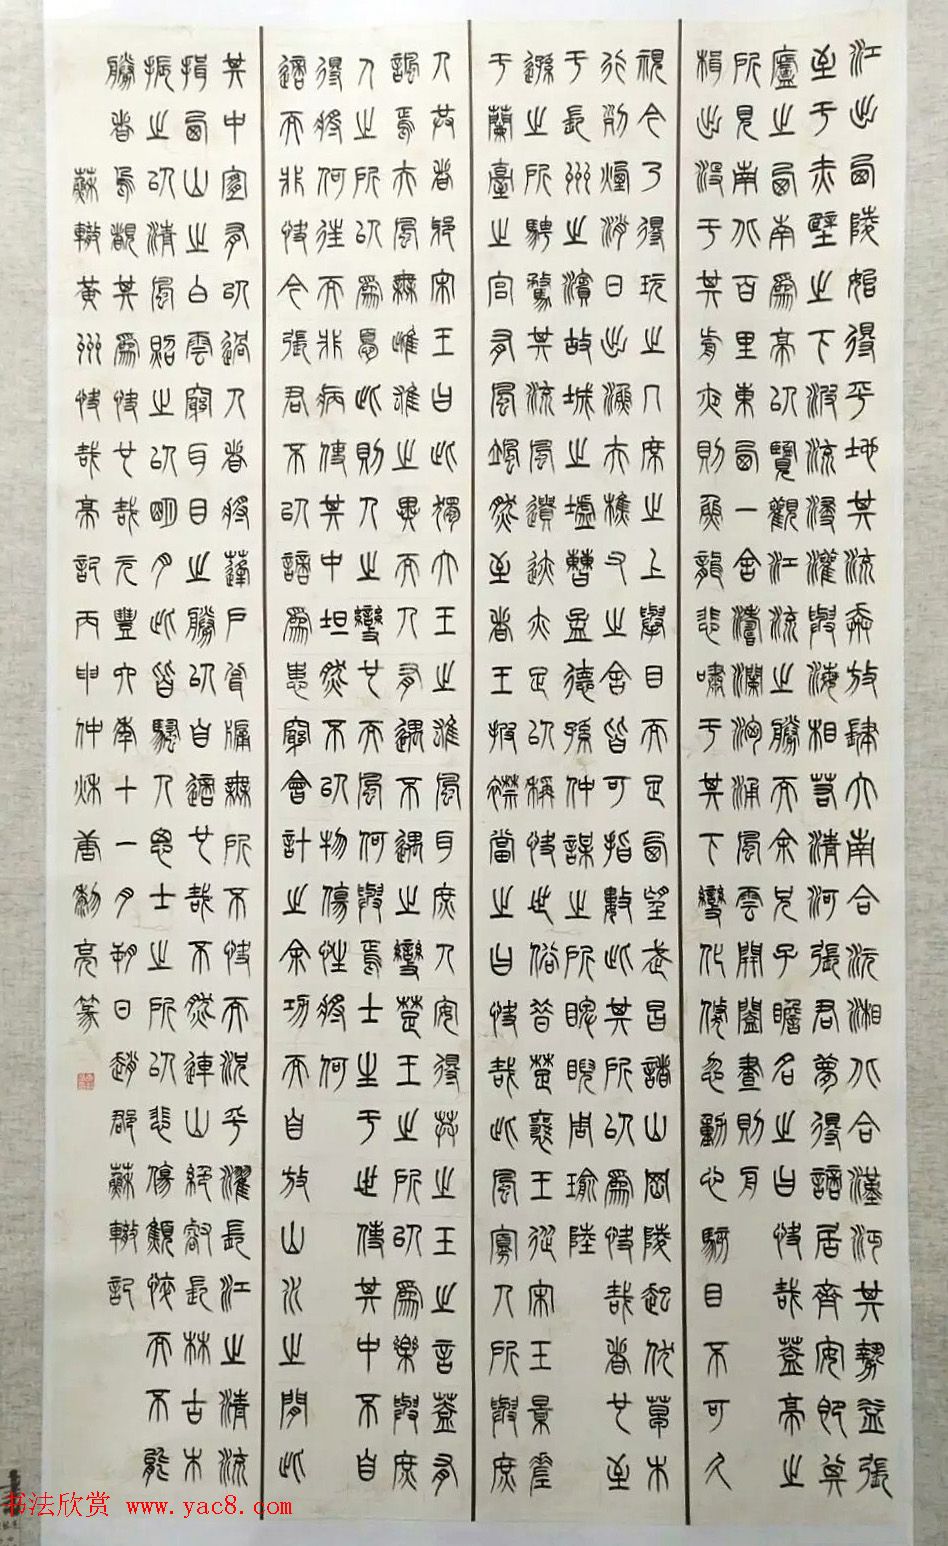 江出西陵始得平地其流奔放肆大南合沅湘北合漢沔其勢益張
至于赤壁之下波流浸灌與海相若清河張君夢得謫居齊安即其
廬之西南為亭以覽觀江流之勝而余兄子瞻名之曰快哉蓋亭之
所見南北百里東西一舍濤瀾洶涌風雲開闔晝則舟
楫出沒于其前夜則魚龍悲嘯于其下變化倏忽動心駭目不可久
視今乃得玩之几席之上舉目而足西望武昌諸山岡陵起伏草木
行列煙消日出漁夫樵父之舍皆可指數此其所以為快哉者也至
于長洲之濱故城之墟曹孟德孫仲謀之所睥睨周瑜陸
遜之所騁騖其流風遺迹亦足以稱快世俗昔楚襄王從宋玉景差
于蘭臺之宮有風颯然至者王披襟當之曰快哉此風寡人所與庶
人共者邪宋玉曰此獨大王之雄風耳庶人安得共之玉之言蓋有
諷焉夫風無雌雄之異而人有遇不遇之變楚王之所以為樂與庶
人之所以為憂此則人之變也而風何與焉士生于世使其中不自
得將何往而非病使其中坦然不以物傷性將何
適而非快今張君不以謫為患竊會計之余功而自放山水之間此
其中宜有以過人者將蓬戶瓮牖無所不快而況乎濯長江之清流
揖西山之白雲窮耳目之勝以自適也哉不然連山絕壑長林古木
振之以清風照之以明月此皆騷人思士之所以悲傷憔悴而不能
勝者烏睹其為快也哉元豐六年十一月朔日趙郡蘇轍記
蘇轍黃州快哉亭記丙申仲秋亮篆
书法欣赏 www.yac8.com